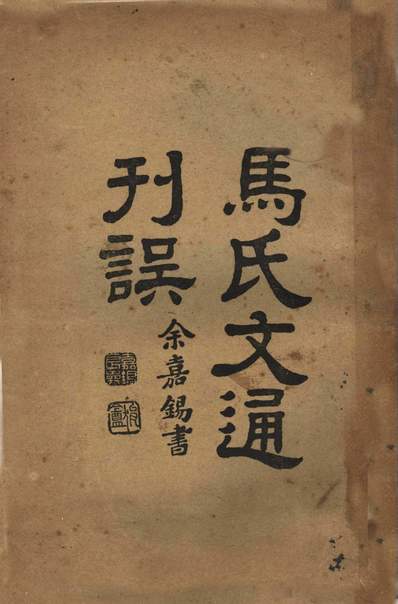 馬氏文通
刊誤
余嘉錫書